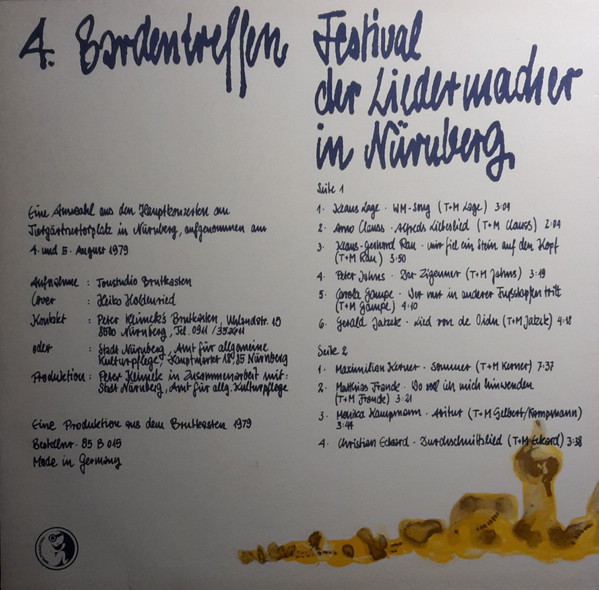 4. Bardentreffen
Festival
der Liedermacher
in Nürnberg
Eine Auswahl aus den Hauptkonzerten am
Tiergärtnertorplatz in Nürnberg, aufgenommen am
4. und 5. August 1979
Aufnahme : Tonstudio Brutkasten
Cover : Heiko Holdenried
Kontakt : Peter Klimek's Brutkasten, Uhlandstr. 19
8500 Nürnberg, Tel. 0911 /
oder : Stadt Nürnberg, Amt für allgemeine
Kulturpflege, Hauptmarkt 18, 85 Nürnberg
Produktion : Peter Klimek in Zusammenarbeit mit:
Stadt Nürnberg, Amt für allg. Kulturpflege
Eine Produktion aus dem Brutkasten 1979
Bestellnr. 85 B 019
Made in Germany
Seite 1
1. Klaus Lage - WM-Song (T+M Lage) 3:09
2. Arno Clauss - Alfreds Liebeslied (T+M Clauss) 2:04
3. Klaus-Gerhard Rau - mir fiel ein Stein auf den Kopf
(T+M Rau) 3:50
4. Peter Johns - Der Zigeuner (T+M Johns) 3:19
5. Carola Gampe - Wer nur in anderer Fußstapfen tritt
(T+M Gampe) 4:10
6. Gerald Jatzek - Lied von de Oidn (T+M Jatzek) 4:18
Seite 2
1. Maximilian Kerner - Sommer (T+M Kerner) 7:37
2. Matthias Frande - Wo soll ich mich hinwenden
(T+M Frande) 3:21
3. Monika Kampmann - Abitur (T+M Gelbert/Kampmann)
3:44
4. Christian Eckard - Durchschnittslied (T+M Eckard) 3:38